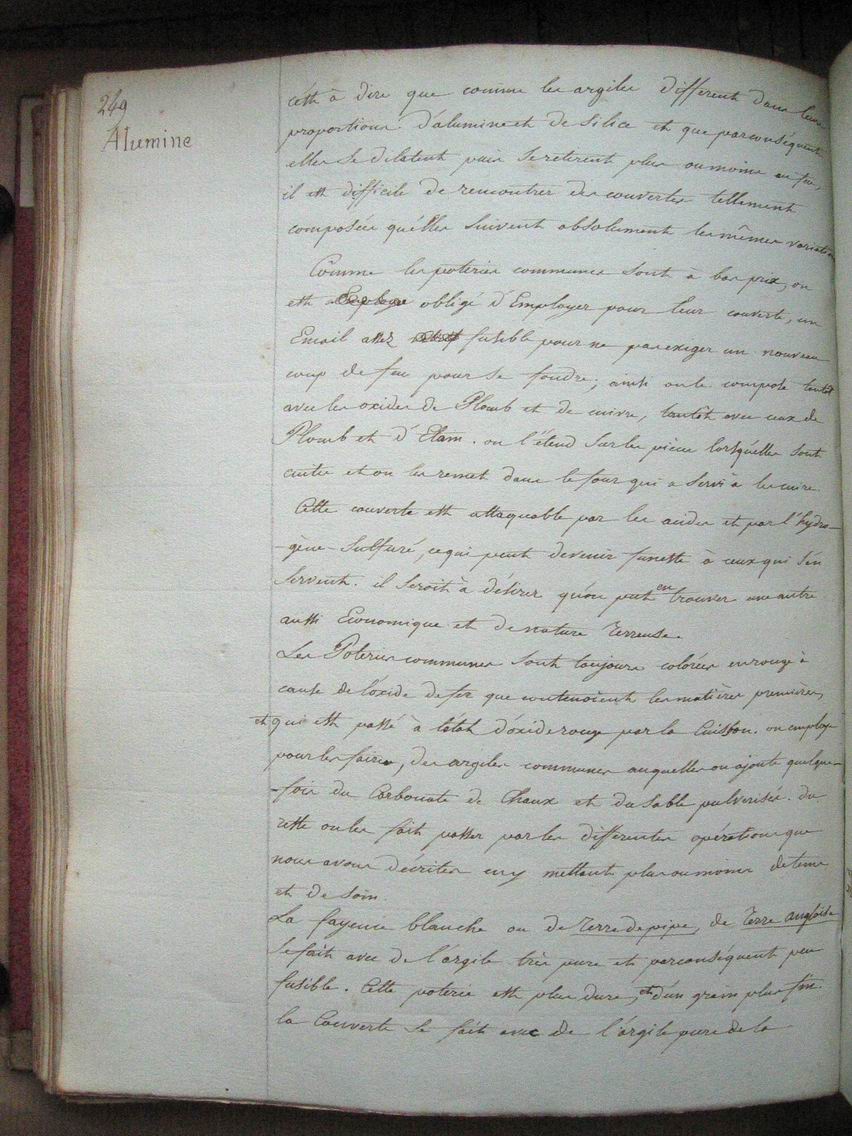 249
Alumine
c'est à dire que comme les argiles different dans leurs
proportions d'alumine et de silice et que parconséquent
elles se dilatent puis se retirent plus ou moins au feu,
il est difficile de rencontrer des couvertes tellement
composées qu'elles suivent absolument les mêmes variations
Comme les poteries communes sont à bas prix, on
est obligé d'Employer pour leur couverte, un
Email assez fusible pour ne pas exiger un nouveau
coup de feu pour se fondre; ainsi on le compose tantôt
avec les oxides de Plomb et de cuivre, tantôt avec ceux de
Plomb et d'Etain. on l'étend sur les pièces lorsqu'elles sont
cuites et on les remet dans le four qui a servi à les cuire.
Cette couverte est attaquable par les acides et par l'hydro-
-gène-sulfuré, ce qui peut devenir funeste à ceux qui s'en
servent. il seroit à désirer qu'on put en trouver une autre
aussi Economique et de nature Terreuse.
Les Poteries communes sont toujours colorées en rouge à
cause de l'oxide de fer que contenoient les matières premières,
et qui est passé à l'etat d'oxide rouge par la Cuisson. on emploie
pour les faire, des argiles communes auquelles on ajoute quelque-
-fois du Carbonate de Chaux et du sable pulverisée. du
reste on les fait passer par les differentes opérations que
nous avons décrites en y mettant plus ou moins de tems
et de soin.
La fayence blanche ou de Terre de pipe, de Terre angloise
se fait avec de l'argile très pure et parconséquent peu
fusible. Cette poterie est plus dure, et d'un grain plus fin.
la Couverte se fait avec de l'argile pure de la